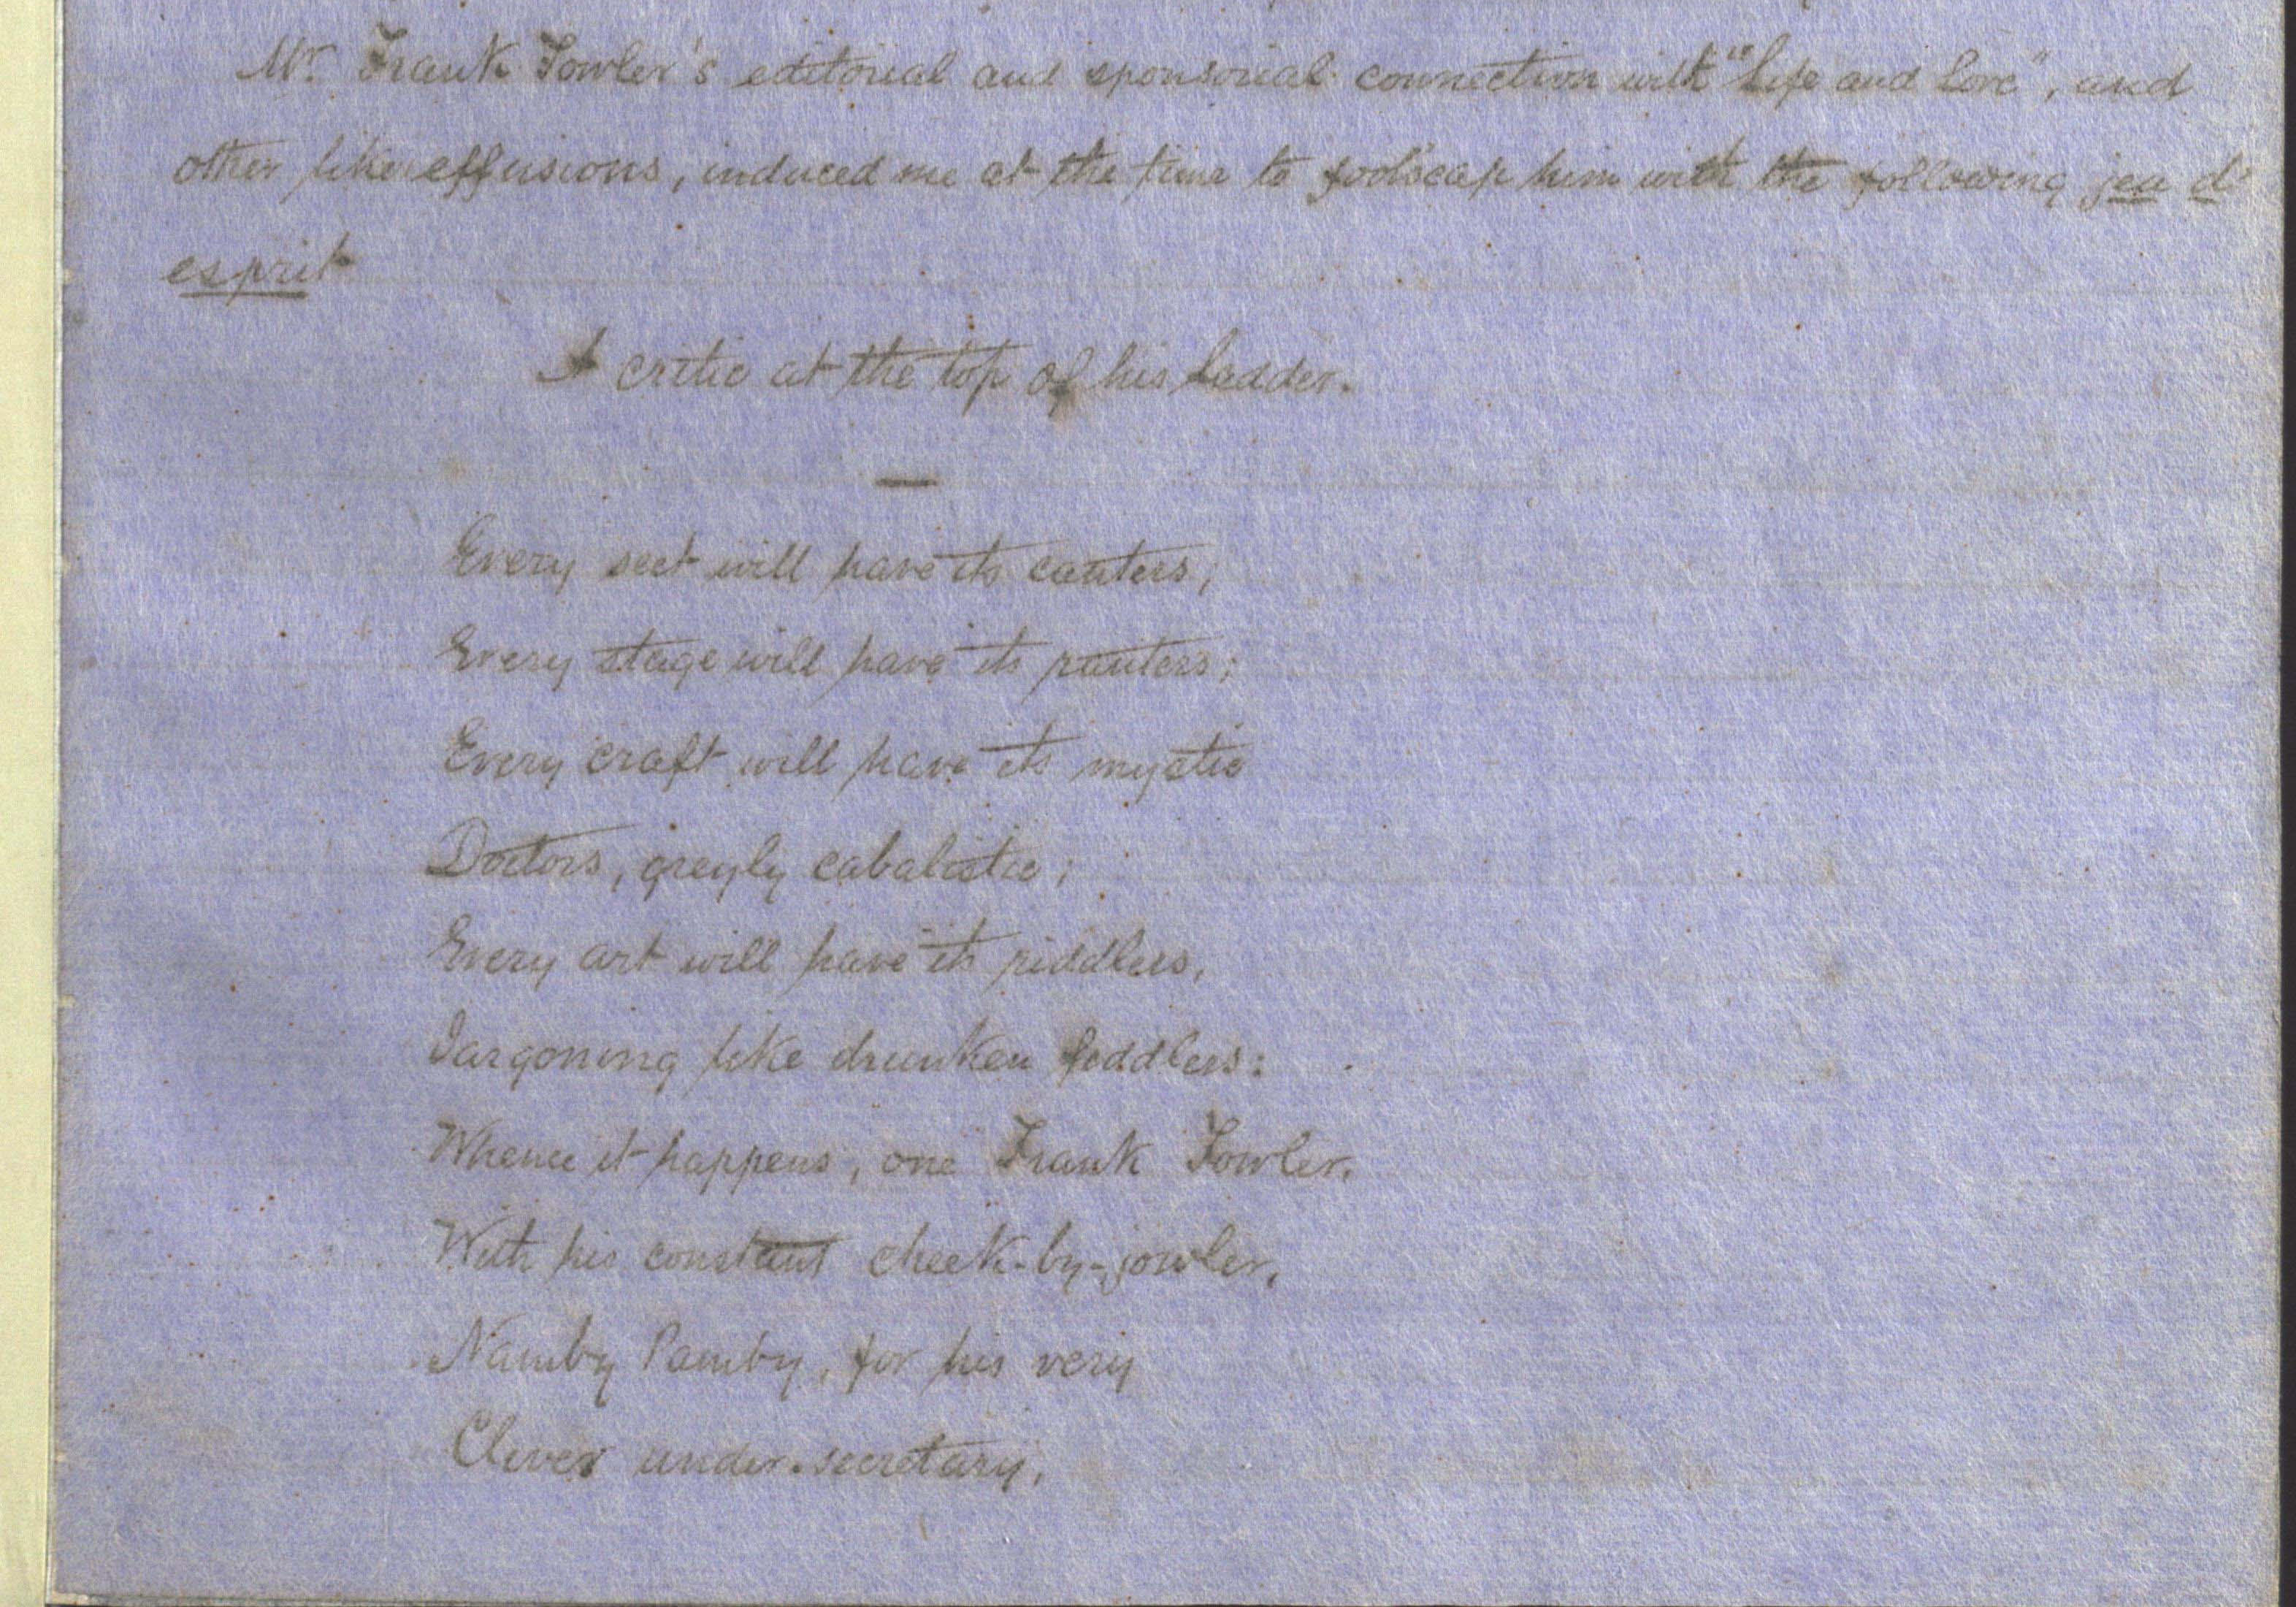 Mr. Frank Fowler's editorial and sponsorial connection with "Life and Love", and
other like effusions, induced me at the time to foolscap him with the following jeu d'
esprit
A critic at the top of his ladder.
—
Every sect will have its canters;
Every stage will have its ranters;
Every craft will have its mystic
Doctors, greyly cabalistic;
Every art will have its riddlers,
Jargoning like drunken fiddlers:
Whence it happens, one Frank Fowler,
With his constant cheek-by-jowler,
Namby Pamby, for his very
Clever under-secretary,